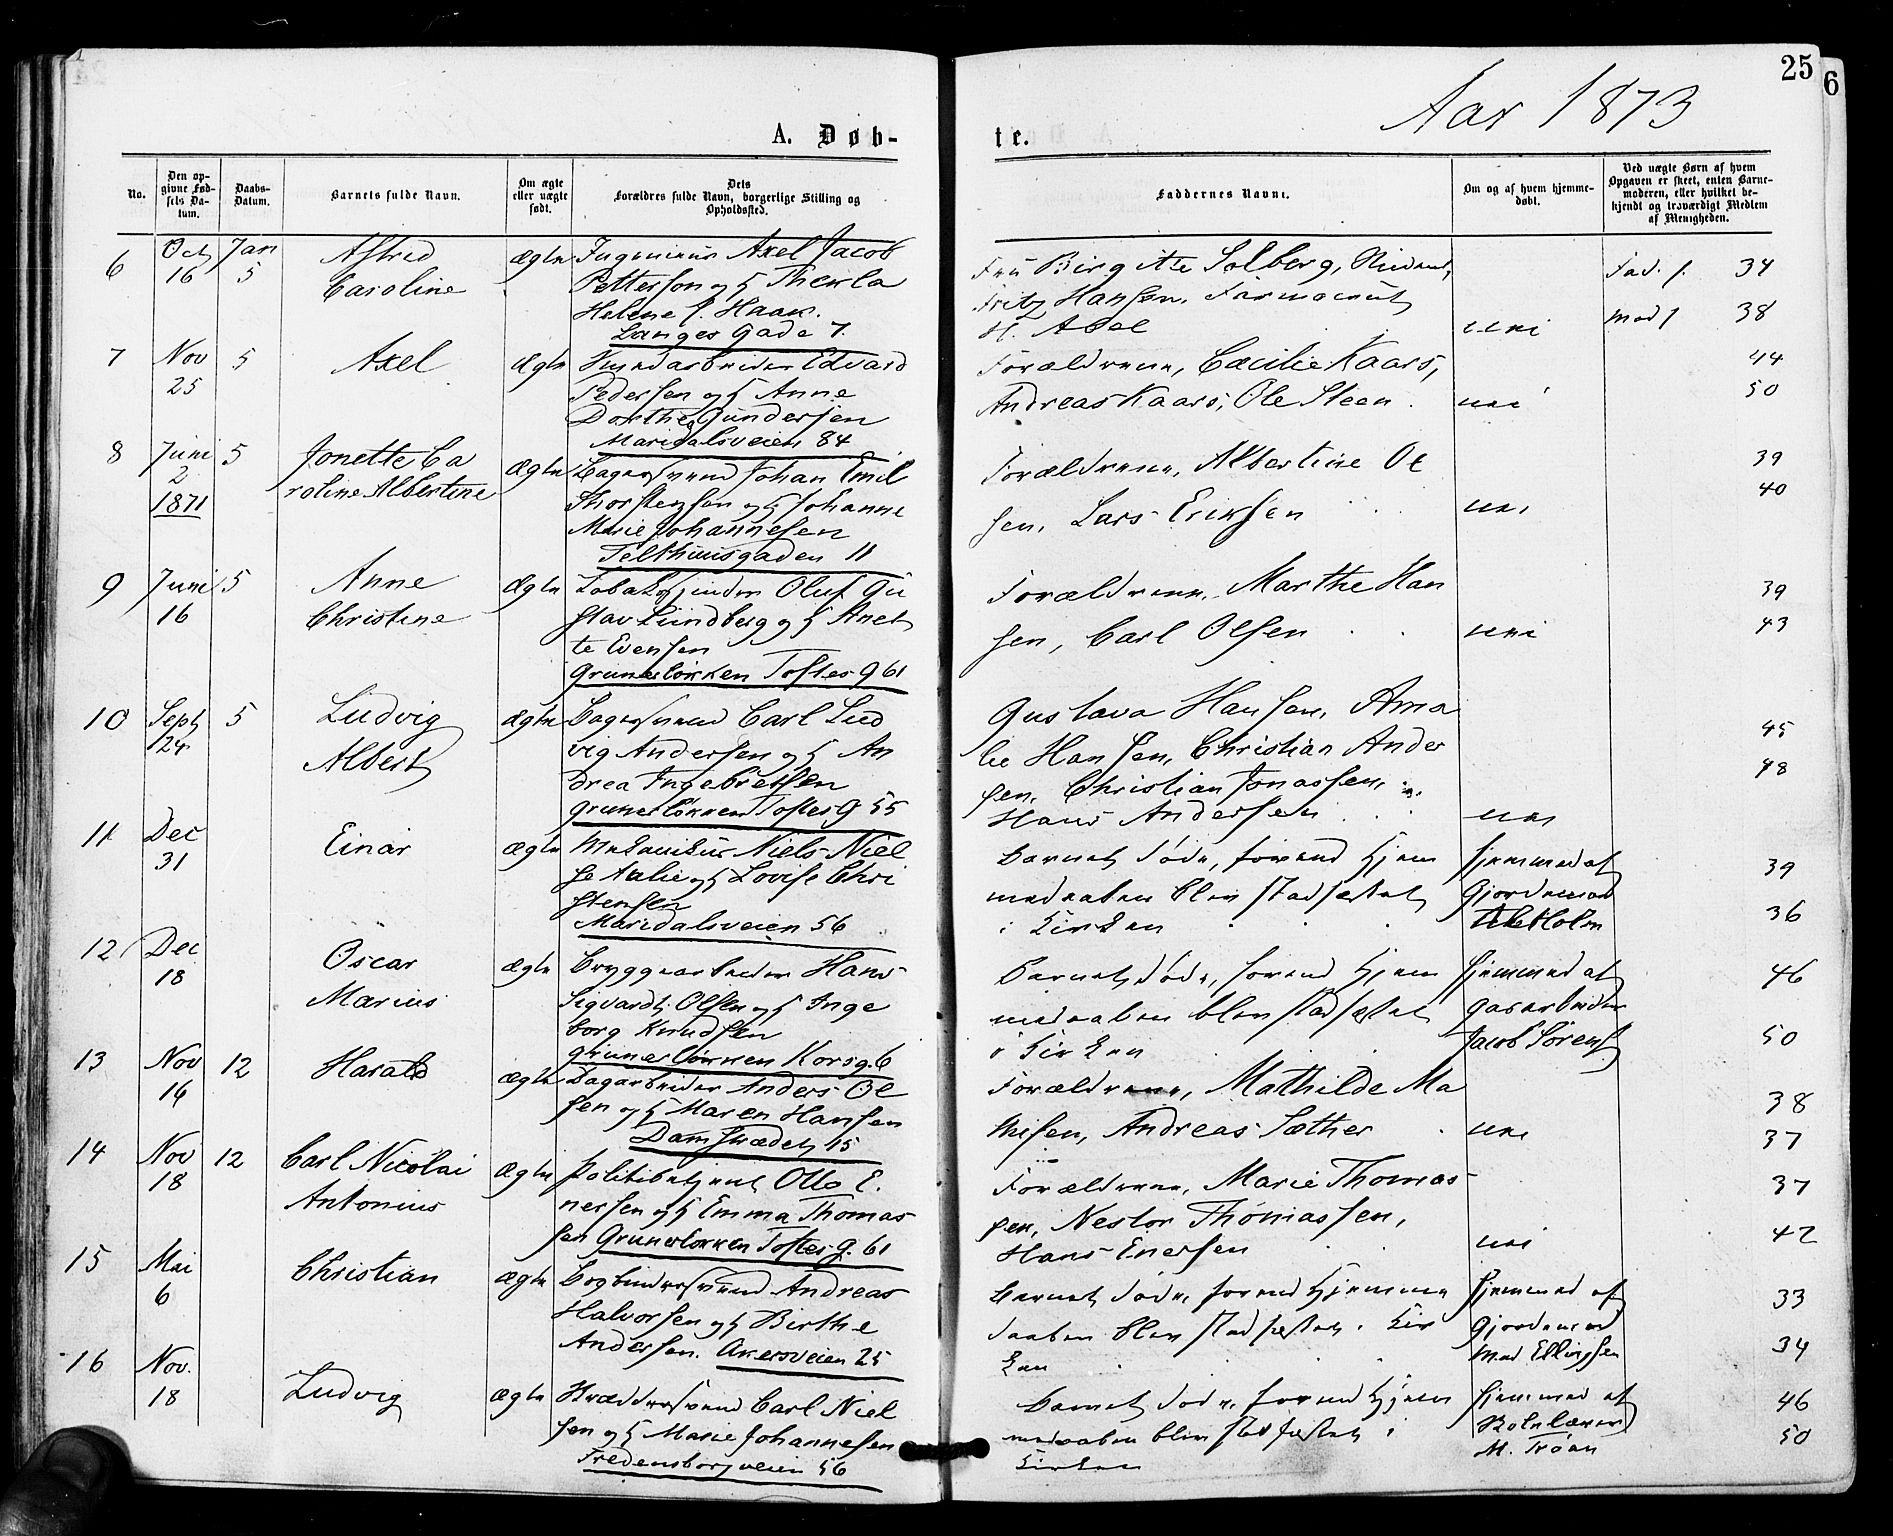 25
6
Aar 1873
A. Døb-
te.
No.
Den op-
givne Fød-
sels Da-
tum.
Daabs-
Datum.
Barnets fulde Navn.
Om ægte
eller uægte
født.
Dets
Forældres fulde Navn, borgerlige Stilling og
Opholdssted.
Faddernes Navne.
Om og af hvem hjemme-
døbt.
Ved uægte Børn af hvem
Opgaven er skeet, enten Barne-
moderen, eller hvilket be-
kjendt og troværdigt Medlem
af Menigheden.
6
Oct
16
Jan
5
Astrid
Caroline
ægte
Ingenieur Axel Jacob
Petterson og H Thekla
Helene f. Haak.
Langes Gade 7.
Fru Birgitte Solberg,
Fritz Hansen, Farmaceut
H. Abel
nei
Fad. f. 34
Mod f 38
7
Nov
25
5
Axel
ægte
Smedarbeider Edvard
Pedersen og H Anne
Dorthe Gundersen
Maridalsveien 84
Forældrene, Cæcilie Kaars,
Andreas Kaars, Ole Steen.
nei
44
50
8
Juni
2
1871
5
Jonette Ca
roline Albertine
ægte
Bagersvend Johan Emil
Thorstensen og H Johanne
Marie Johannesen
Telthuusgaden 11
Forældrene, Albertine Ol
sen, Lars Eriksen
nei
39
40
9
Juni
16
5
Anne
Christine
ægte
Tobakspinder Oluf Gu
stav Lundberg og H Anet
te Evensen
Grunerløkken Toftes G 61
Forældrene, Marthe Han
sen, Carl Olsen
nei
39
43
10
Sept
24
5
Ludvig
Albert
ægte
Bagersvend Carl Lud
vig Andersen og H An
drea Ingebretsen
Grunerløkken Toftes G 55
Gustava Hansen, Ama
lie Hansen, Christian Ander
sen, Christian Jonassen,
Hans Andersen
nei
45
48
11
Dec
31
Einar
ægte
Mekanikus Niels Niel
se Aalie og H Lovise Chri
stensen
Maridalsveien 56
Barnet døde, førend Hjem
medaaben blev stadfæstet
i Kirken
Hjemmed af
Gjordemod
Holm
39
36
12
Dec
18
Oscar
Marius
ægte
Bryggearbeider Hans
Sigvardt Olsen og H Inge
borg Knudsen
Grunerløkken Korsg. 6
Barnet døde, førend Hjem
medaaben blev stadfæstet
i Kirken
Hjemmed af
Gasarbeider
Jacob Sørens
46
50
13
Nov
16
12
Harald
ægte
Dagarbeider Anders Ol
sen og H Maren Hansen
Damstrædet 15
Forældrene, Mathilde Ma
thisen, Andreas Sæther
nei
38
37
14
Nov
18
12
Carl Nicolai
Antonius
ægte
Politibetjent Otto E
nersen og H Emma Thomas
sen Grunerløkken Toftes G. 61
Forældrene, Marie Thomas
sen, Nestor Thomassen,
Hans Enersen
nei
37
42
15
Mai
6
Christian
ægte
Bogbindersvend Andreas
Halvorsen og H Birthe
Andersen. Akersveien 25
Barnet døde, førend Hjemme
daaben blev stadfæstet i Kir
ken
Hjemmed af
Gjordemod
Mad Ellingsen
33
34
16
Nov.
18
Ludvig
ægte
Skræddersvend Carl Niel
sen og H Marie Johannesen
Fredensborgveien 56
Barnet døde, førend Hjem
medaaben blev stadfæstet i
Kirken
Hjemmed af
Skolelærer
M. Trøan
46
50